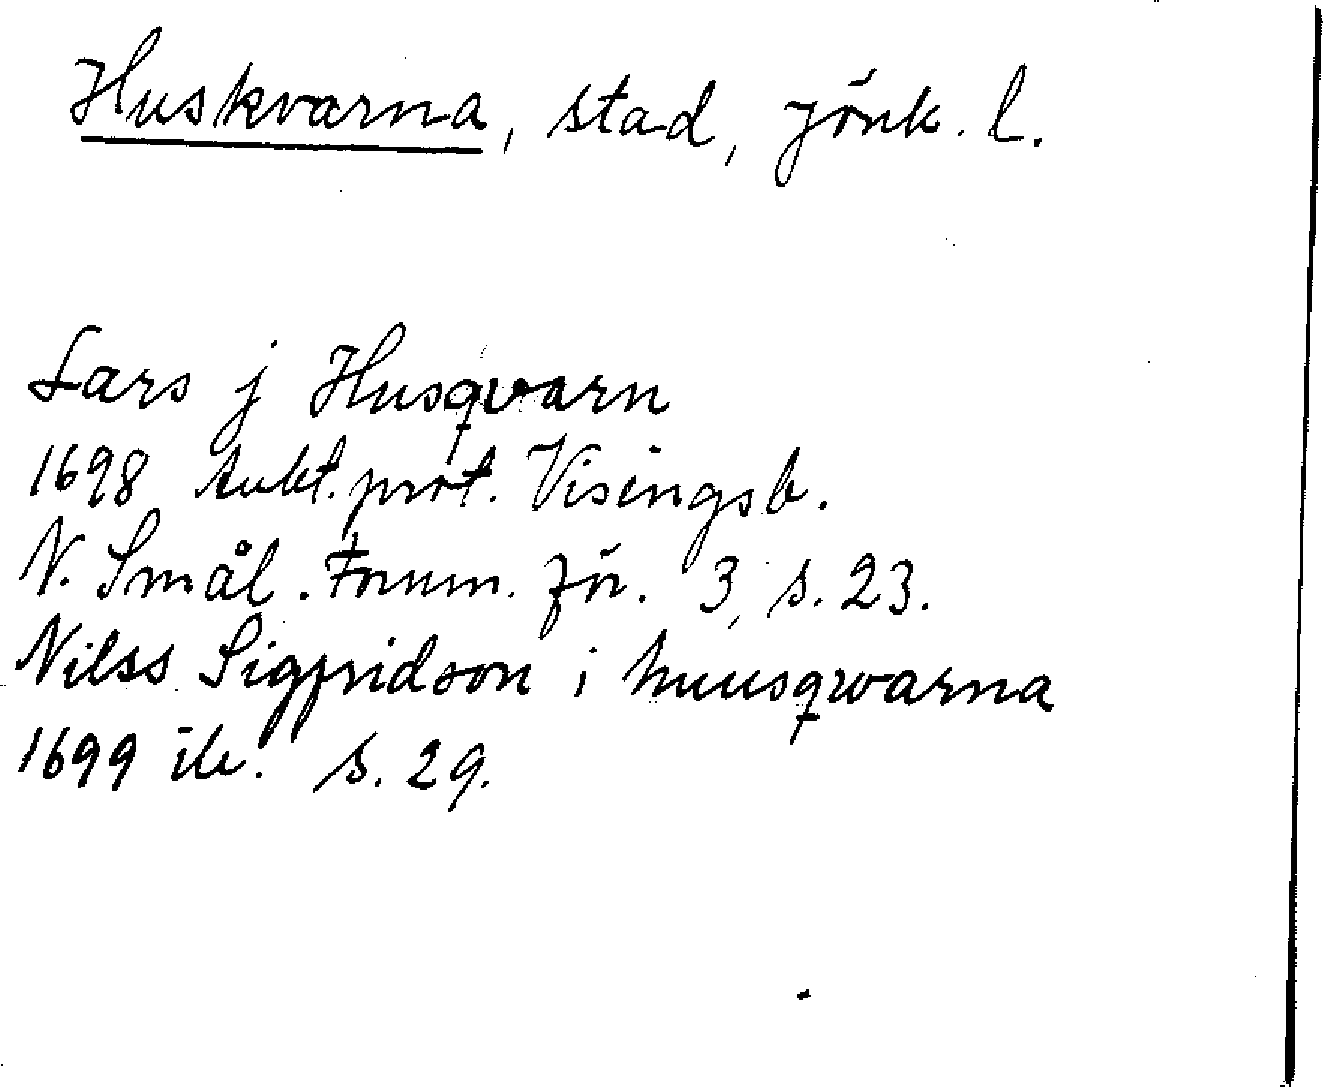 Huskvarna, stad, Jönk. l.
Lars j Husqvarn
1698 Aukt. prot. Visingsb.
N. Smål. Fornm. för. 3, s. 23.
Nilss Sigfridson i huusqwarna
1699 ib. s. 29.